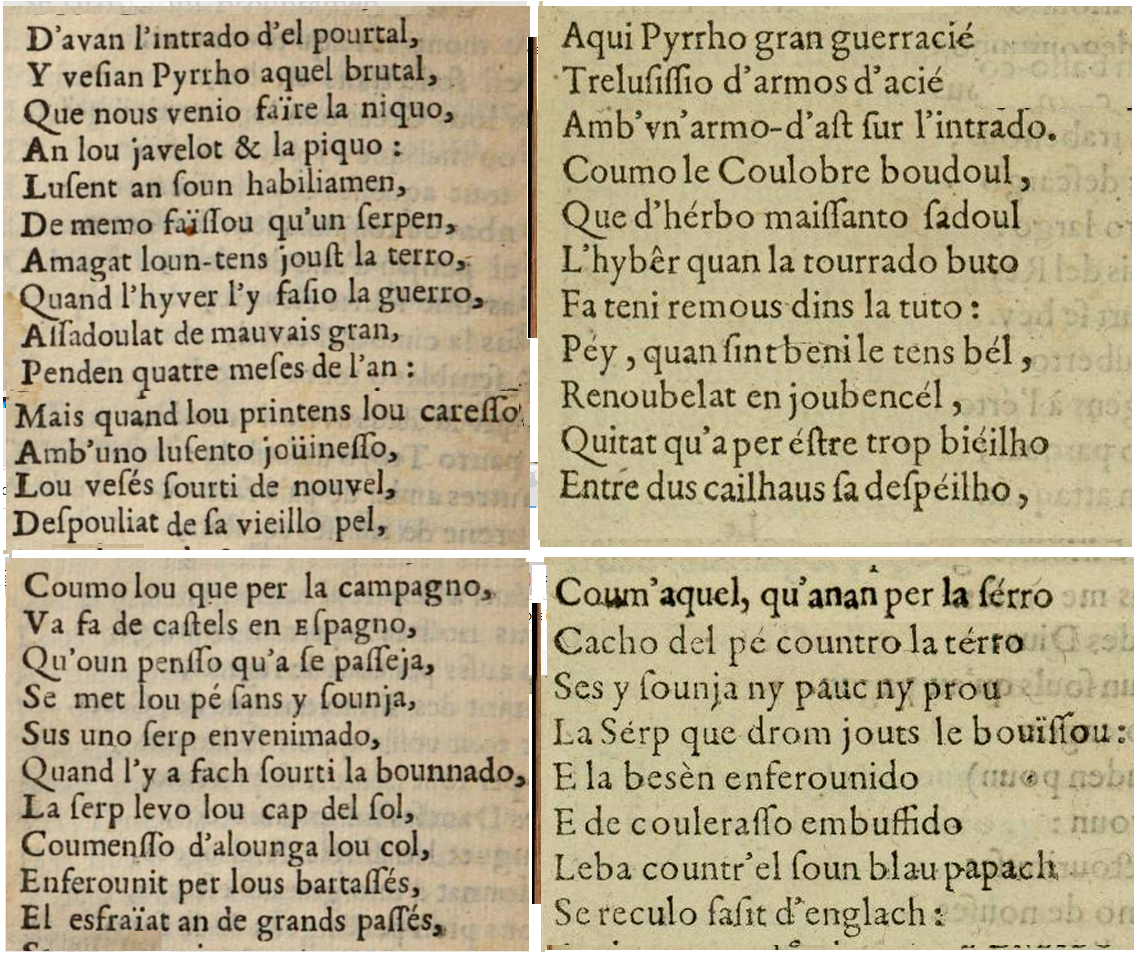 D'avan l'intrado d'el pourtal,
Y veſian Pyrrho aquel brutal,
Que nous venio faïre la niquo,
An lou javelot & la piquo :
Luſent an ſoun habiliamen,
De memo faïſſou qu'un ſerpen,
Amagat loun-tens jouſt la terro,
Quand l'hyver l'y faſio la guerro,
Aſſadoulat de mauvais gran,
Penden quatre meſes de l'an :
Mais quand lou printens lou careſſo,
Amb'uno luſento joüineſſo,
Lou veſés ſourti de nouvel,
Deſpouliat de ſa vieillo pel,
Aqui Pyrrho gran guerracié
Treluſiſſio d'armos d'acié
Amb'vn'armo-d'aſt ſur l'intrado.
Coumo le Coulobre boudoul,
Que d'hérbo maiſſanto ſadoul
L'hybêr quan la tourrado buto
Fa teni remous dins la tuto :
Péy, quan ſint beni le tens bél,
Renoubelat en joubencél,
Quitat qu'a per éſtre trop biéilho
Entre dus cailhaus ſa deſpéilho,
Coumo lou que per la campagno,
Va fa de caſtels en Eſpagno,
Qu'oun penſſo qu'a ſe paſſeja,
Se met lou pé ſans y ſounja,
Sus uno ſerp envenimado,
Quand l'y a fach ſourti la bounnado,
La ſerp levo lou cap del ſol,
Coumenſſo d'alounga lou col,
Enferounit per lous bartaſſés,
El esfraïat an de grands paſſés,
Coum'aquel, qu'anan per la ſérro
Cacho del pé countro la térro
Ses y ſounja ny pauc ny prou
La Sérp que drom jouts le bouïſſou :
E la besèn enferounido
E de couleraſſo embuffido
Leba countr'el ſoun blau papach
Se reculo ſaſit d'englach :